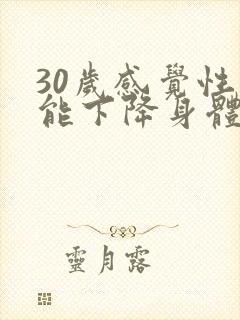 30歲感覺性
能下降身體
靈月露